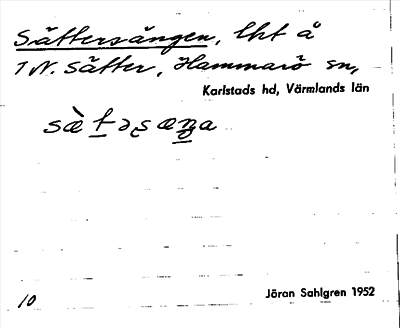 Sättersängen, lht å
1 N. Sätter, Hammarö sn,
Karlstads hd, Värmlands län
sæ̀t̲əʂæŋ̲a
10
Jöran Sahlgren 1952